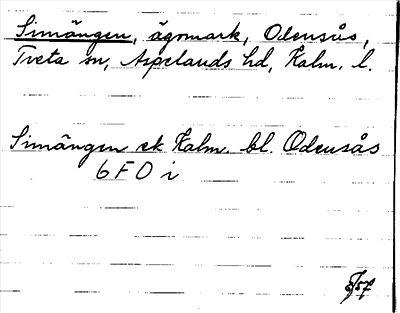 Simängen, ägomark, Odensås,
Tveta sn, Aspelands hd, Kalm. l.
Simängen ek Kalm. bl. Odensås
6 F 0 i